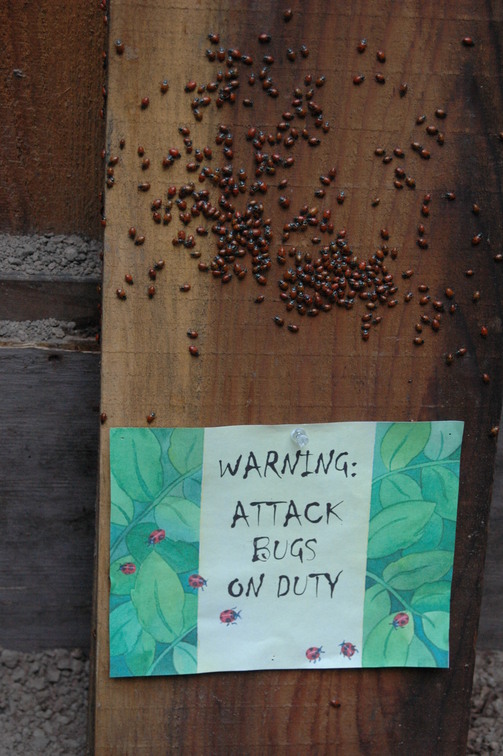 WARNING:
ATTACK
BUGS
ON DUTY